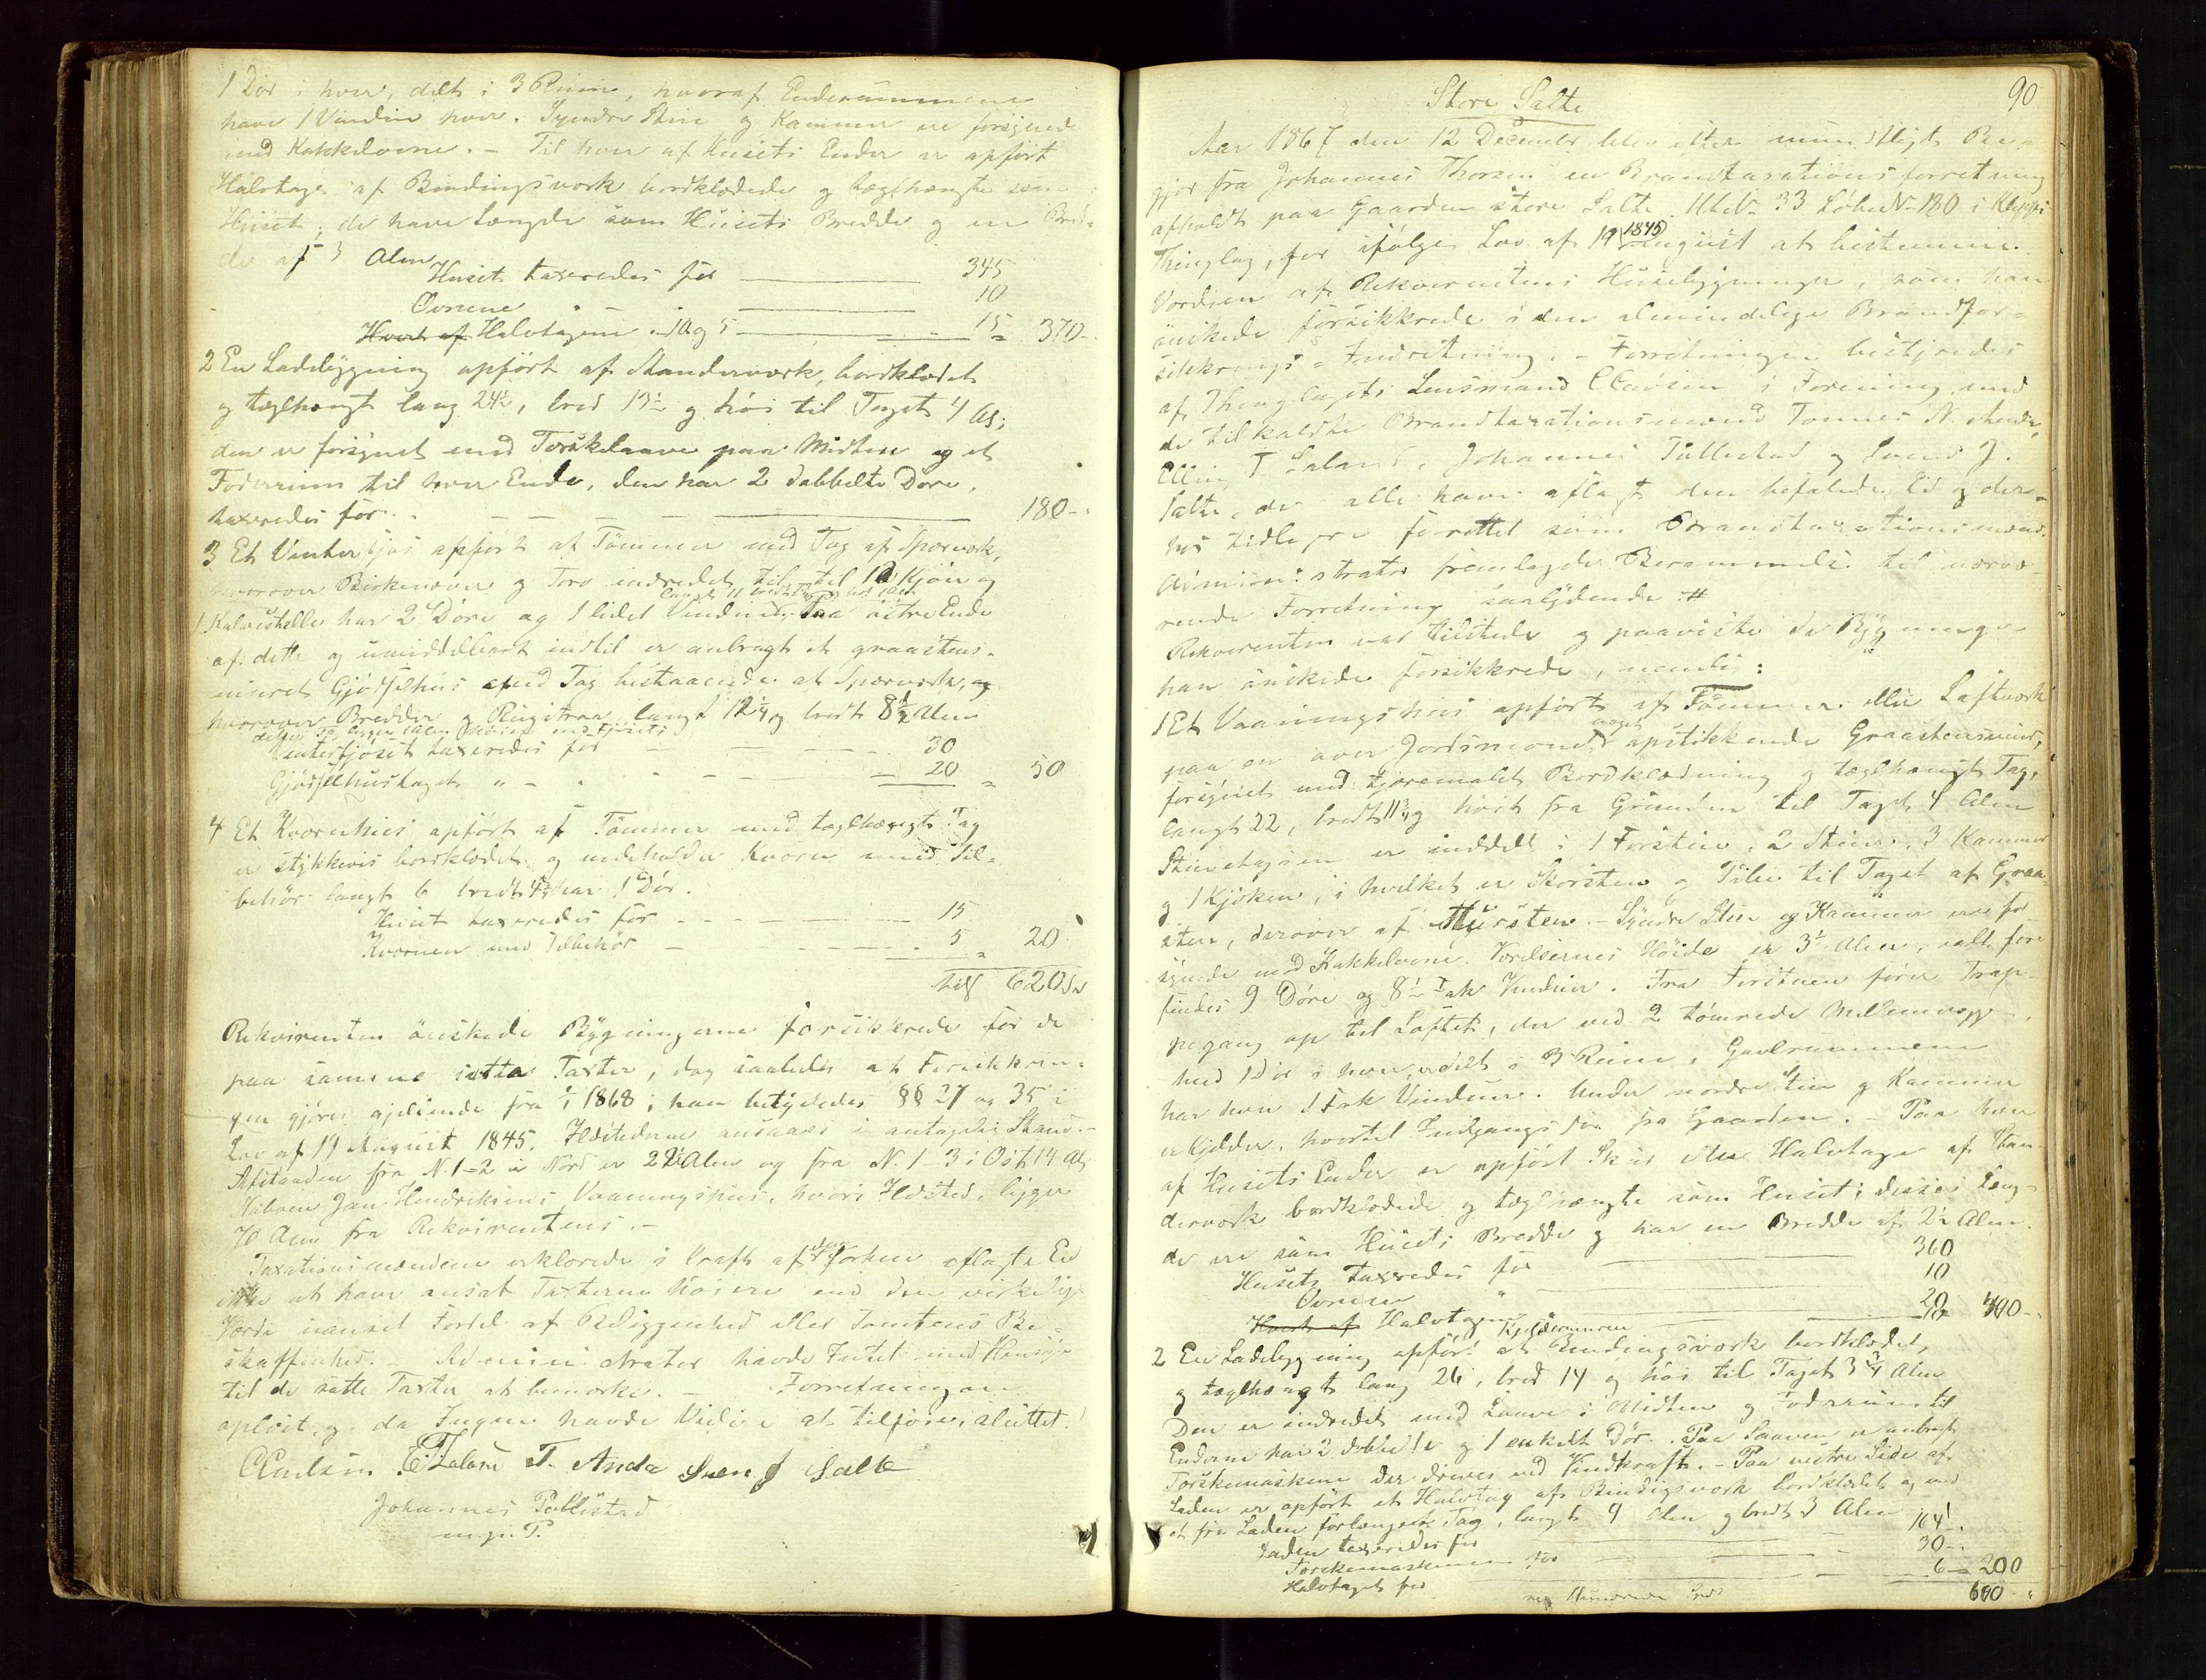 1 Dör i hver, delt i 3 Rum, hvoraf Enderummene
have 1 Vindue hver. Syndre Stue og Kammer ere forsynede
med Kakkelovne. - Til hver af Husets Ender er opført
Halvtage af Bindingsværk bordklædede og tæglhængte som
Huset; de have Længde som Husets Bredde og en Bred-
de af 3 Alen
Huset taxeredes for 345
Ovnene " - 10
Hvert af Halvtagene - 10 og 5 - 15 = 370-
2 En Ladebygning opført af Standerværk, bordklædt
og tæglhængt lang 24½, bred 13½ og höi til Taget 4 Al;
den er forsynet med Torskelaave paa Midten og et
Foderrum til hver Ende, den har 2 dobbelte Döre,
taxeredes for 180-
3 Et Vinterfjös opført af Tömmer med Tag af Sperværk,
hvorover Birkenæver og Torv indredet til 10 Kjör og
1 Kalvestelle har 2 Döre og 1 lidet Vindue. Paa östre Ende
af dette og umiddelbart indtil er anbragt et graastens-
muret Gjödselhus med Tag bestaaende af Sperværk, og
hvorover Bredder og Rugstraa langt 12¼ og bredt 8½ Alen
dettes Tag ligger 1 Alen höiere end Fjösets
Vinterfjöset taxeredes for 30
Gjödselhustaget " - 20 = 50
4 Et Kværnhus opført af Tömmer med tæglhængt Tag
er stykkevis bordklædet og indeholder Kværn med Til-
behör langt 6 bredt 4¾ har 1 Dör.
Huset taxeredes for 15
Kværnen med Tilbehör 5 = 20
tils 620 Sp
Rekvirenten önskede Bygningerne forsikkrede for de
paa samme satte Taxter, dog saaledes at Forsikkrin-
gen gjöres gjeldende fra 1/1 1868; han betydedes §§ 27 og 35 i
Lov af 19 August 1845. Ildstederne ansaaes i antagelig Stand.-
Afstanden fra N. 1-2 i Nord er 22½ Alen og fra N. 1-3 i Öst 14 Al
Naboen Jan Hendriksens Vaaningshus, hvori Ildsted, ligger
70 Alen fra Rekvirentens.-
Taxationsmændene erklærede i Kraft af den forhen aflagte Ed
ikke at have ansat Taxterne höiere end den virkelige
Værdi uanset Fordel af Beliggenhed eller Tomtens Be-
skaffenhed. - Administrator havde Intet med Hensyn
til de satte Taxter at bemærke. - Forretningen
oplæst, og da Ingen havde Videre at tilföie, sluttet.
CClausen E T Laland T. Anda Sven J Salte
Johannes Tullestad
m. p. P.
90
Store Salte
Aar 1867 den 12 December blev efter mundtligt Be-
gjær fra Johannes Thorsen en Brandtaxationsforretning
afholdt paa Gaarden Store Salte M No 33 Löbe No 180 i Kleps
Thinglag, for ifölge Lov af 19 August 1845 at bestemme
Værdien af Rekvirentens Husebygninger, som han
önskede forsikkrede i den almindelige Brandfor-
sikkrings-Indretning. - Forretningen bestyredes
af Thinglagets Lensmand CClausen i Forening med
de tilkaldte Brandtaxationsmænd Tonnes N. Anda,
Elling T Laland, Johannes Tullestad og Svend J.
Salte, der alle have aflagt den befalede Ed og der-
hos tidligere forrettet som Brandtaxationsmænd.
Administrator fremlagde Berammelse til nærvæ-
rende Forretning saalydende #
Rekvirenten var tilstede og paaviste de Bygninger
han önskede forsikkrede, nemlig:
1 Et Vaaningshus opført af Tömmer eller Laftværk
paa en over Jordsmonnet noget opstikkende Graastensmur,
forsynet med tjæremalet Bordklædning og tæglhængt Tag,
langt 22, bredt 11¾ og höit fra Grunden til Taget 4 Alen
Stueetagen er inddelt i 1 Forstue, 2 Stuer, 3 Kammer
og 1 Kjöken, i hvilket er Skorsten og Pibe til Taget af Graa-
sten, derover af Mursten. - Syndre Stue og Kammer ere for-
synede med Kakkelovne. Værelsernes Höide er 3½ Alen, ialt fore-
findes 9 Döre og 8½ Fak Vinduer. Fra Forstuen förer Trap-
pegang op til Loftet, der ved 2 tömrede Mellemvægge
med 1 Dör i hver, er delt i 3 Rum, Gavlrummene
har hver 1 Fak Vinduer. Under nordre Stue og Kammer
er Kjelder, hvortil Indgangsdör fra Gaarden. Paa hver
af Husets Ender er opført Skur eller Halvtage af Stan-
derværk bordklædede og tæglhængte som Huset; disses Læng-
de ere som Husets Bredde og har en Bredde af 2½ Alen.
Husets taxeredes for 360
Ovnene " 10
Hvert af Halvtagene 20
Kjeldermuren 10 400-
2 En Ladebygning opført af Bindingsværk bordklædt,
og tæglhængt lang 26, bred 14 og höi til Taget 3¾ Alen
Den er indredet med Laave i Midten og Foderrum til
Enderne har 2 dobbelte og 1 enkelt Dör. Paa Laaven er anbragt
Torskemaskine der drives ved Vindkraft. - Paa vestre Side af
Laden er opført et Halvtag af Bindingsværk bordklædt og med
et fra Laden forlænget Tag, langt 9 Alen og bredt 3 Alen
Laden taxeredes for 164
Torskemaskinen for 30
Halvtaget for 6 = 200
Sex Hundrede Spd 600